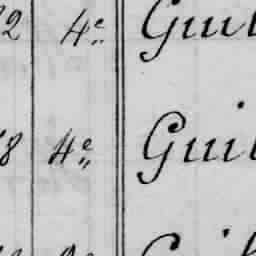 2 4e Guil
8 4e Guil